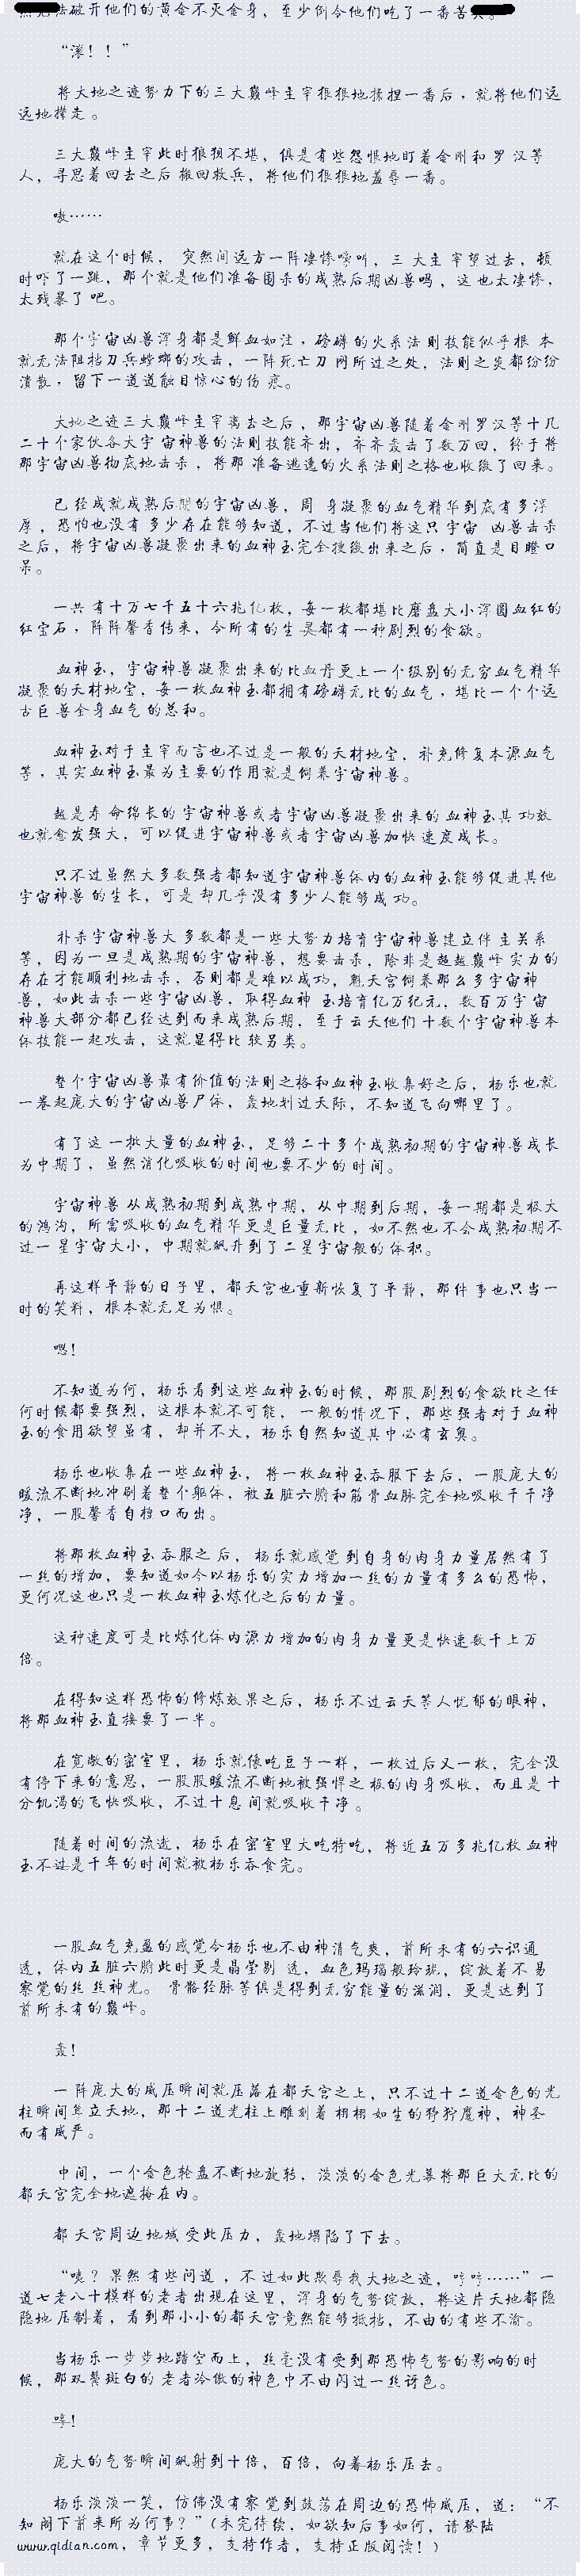 法破开他们的黄金不灭金身，至少例令他们吃了一番苦
“滚！！”
将大地之迹势力下的三大巅峰主宰狠狠地揉捏一番后，就将他们远
远地撵走。
三大巅峰主宰此时狼狈不堪，俱是有些怨恨地盯着金刚和罗汉等
人，寻思着回去之后搬回救兵，将他们狠狠地羞辱一番。
嗷……
就在这个时候，突然间远方一阵凄惨嚎叫，三大主宰望过去，顿
时吓了一跳，那个就是他们准备围杀的成熟后期凶兽吗，这也太凄惨，
太残暴了吧。
那个宇宙凶兽浑身都是鲜血如注，磅礴的火系法则技能似乎根本
就无法阻挡刀兵螳螂的攻击，一阵死亡刀网所过之处，法则之炎都纷纷
溃散，留下一道道触目惊心的伤痕。
大地之迹三大巅峰主宰离去之后，那宇宙凶兽随着金刚罗汉等十几
二十个家伙各大宇宙神兽的法则技能齐出，齐齐轰击了数万回，终于将
那宇宙凶兽彻底地击杀，将那准备逃逸的火系法则之格也收缴了回来。
已经成就成熟后期的宇宙凶兽，周身凝聚的血气精华到底有多浑
厚，恐怕也没有多少存在能够知道，不过当他们将这只宇宙凶兽击杀
之后，将宇宙凶兽凝聚出来的血神玉完全搜缴出来之后，简直是目瞪口
呆。
一共有十万七千五十六兆亿枚，每一枚都堪比磨盘大小浑圆血红的
红宝石，阵阵馨香传来，令所有的生灵都有一种剧烈的食欲。
血神玉，宇宙神兽凝聚出来的比血丹更上一个级别的无穷血气精华
凝聚的天材地宝，每一枚血神玉都拥有磅礴无比的血气，堪比一个个远
古巨兽全身血气的总和。
血神玉对于主宰而言也不过是一般的天材地宝，补充修复本源血气
等，其实血神玉最为主要的作用就是饲养宇宙神兽。
越是寿命绵长的宇宙神兽或者宇宙凶兽凝聚出来的血神玉其功效
也就愈发强大，可以促进宇宙神兽或者宇宙凶兽加快速度成长。
只不过虽然大多数强者都知道宇宙神兽体内的血神玉能够促进其他
宇宙神兽的生长，可是却几乎没有多少人能够成功。
扑杀宇宙神兽大多数都是一些大势力培育宇宙神兽建立伴主关系
等，因为一旦是成熟期的宇宙神兽，想要击杀，除非是超越巅峰实力的
存在才能顺利地击杀，否则都是难以成功，魁天宫饲养那么多宇宙神
兽，如此击杀一些宇宙凶兽，取得血神玉培育亿万纪元，数百万宇宙
神兽大部分都已经达到而来成熟后期，至于云天他们十数个宇宙神兽本
体技能一起攻击，这就显得比较另类。
整个宇宙凶兽最有价值的法则之格和血神玉收集好之后，杨乐也就
一卷起庞大的宇宙凶兽尸体，轰地划过天际，不知道飞向哪里了。
有了这一批大量的血神玉，足够二十多个成熟初期的宇宙神兽成长
为中期了，虽然消化吸收的时间也要不少的时间。
宇宙神兽从成熟初期到成熟中期，从中期到后期，每一期都是极大
的鸿沟，所需吸收的血气精华更是巨量无比，如不然也不会成熟初期不
过一星宇宙大小，中期就飙升到了二星宇宙般的体积。
再这样平静的日子里，都天宫也重新恢复了平静，那件事也只当一
时的笑料，根本就无足为惧。
嗯！
不知道为何，杨乐看到这些血神玉的时候，那股剧烈的食欲比之任
何时候都要强烈，这根本就不可能，一般的情况下，那些强者对于血神
玉的食用欲望虽有，却并不大，杨乐自然知道其中必有玄奥。
杨乐也收集在一些血神玉，将一枚血神玉吞服下去后，一股庞大的
暖流不断地冲刷着整个躯体，被五脏六腑和筋骨血脉完全地吸收干干净
净，一股馨香自档口而出。
将那枚血神玉吞服之后，杨乐就感觉到自身的肉身力量居然有了
一丝的增加，要知道如今以杨乐的实力增加一丝的力量有多么的恐怖，
更何况这也只是一枚血神玉炼化之后的力量。
这种速度可是比炼化体内源力增加的肉身力量更是快速数千上万
倍。
在得知这样恐怖的修炼效果之后，杨乐不过云天等人忧郁的眼神，
将那血神玉直接要了一半。
在宽敞的密室里，杨乐就像吃豆子一样，一枚过后又一枚，完全没
有停下来的意思，一股股暖流不断地被强悍之极的肉身吸收，而且是十
分饥渴的飞快吸收，不过十息间就吸收干净。
随着时间的流逝，杨乐在密室里大吃特吃，将近五万多兆亿枚血神
玉不过是千年的时间就被杨乐吞食完。
一股血气充盈的感觉令杨乐也不由神清气爽，前所未有的六识通
透，体内五脏六腑此时更是晶莹剔透，血色玛瑙般玲珑，绽放着不易
察觉的丝丝神光。骨骼经脉等俱是得到无穷能量的滋润，更是达到了
前所未有的巅峰。
轰！
一阵庞大的威压瞬间就压落在都天宫之上，只不过十二道金色的光
柱瞬间耸立天地，那十二道光柱上雕刻着栩栩如生的狰狞魔神，神圣
而有威严。
中间，一个金色轮盘不断地旋转，淡淡的金色光幕将那巨大无比的
都天宫完全地遮掩在内。
都天宫周边地域受此压力，轰地塌陷了下去。
“咦？果然有些问道，不过如此欺辱我大地之迹，哼哼……”一
道七老八十模样的老者出现在这里，浑身的气势绽放，将这片天地都隐
隐地压制着，看到那小小的都天宫竟然能够抵挡，不由的有些不渝。
当杨乐一步步地踏空而上，丝毫没有受到那恐怖气势的影响的时
候，那双鬓斑白的老者冷傲的神色中不由闪过一丝讶色。
哼！
庞大的气势瞬间飙射到十倍，百倍，向着杨乐压去。
杨乐淡淡一笑，仿佛没有察觉到鼓荡在周边的恐怖威压，道：“不
知阁下前来所为何事？”(未完待续，如欲知后事如何，请登陆
www.qidian.com，章节更多，支持作者，支持正版阅读！)